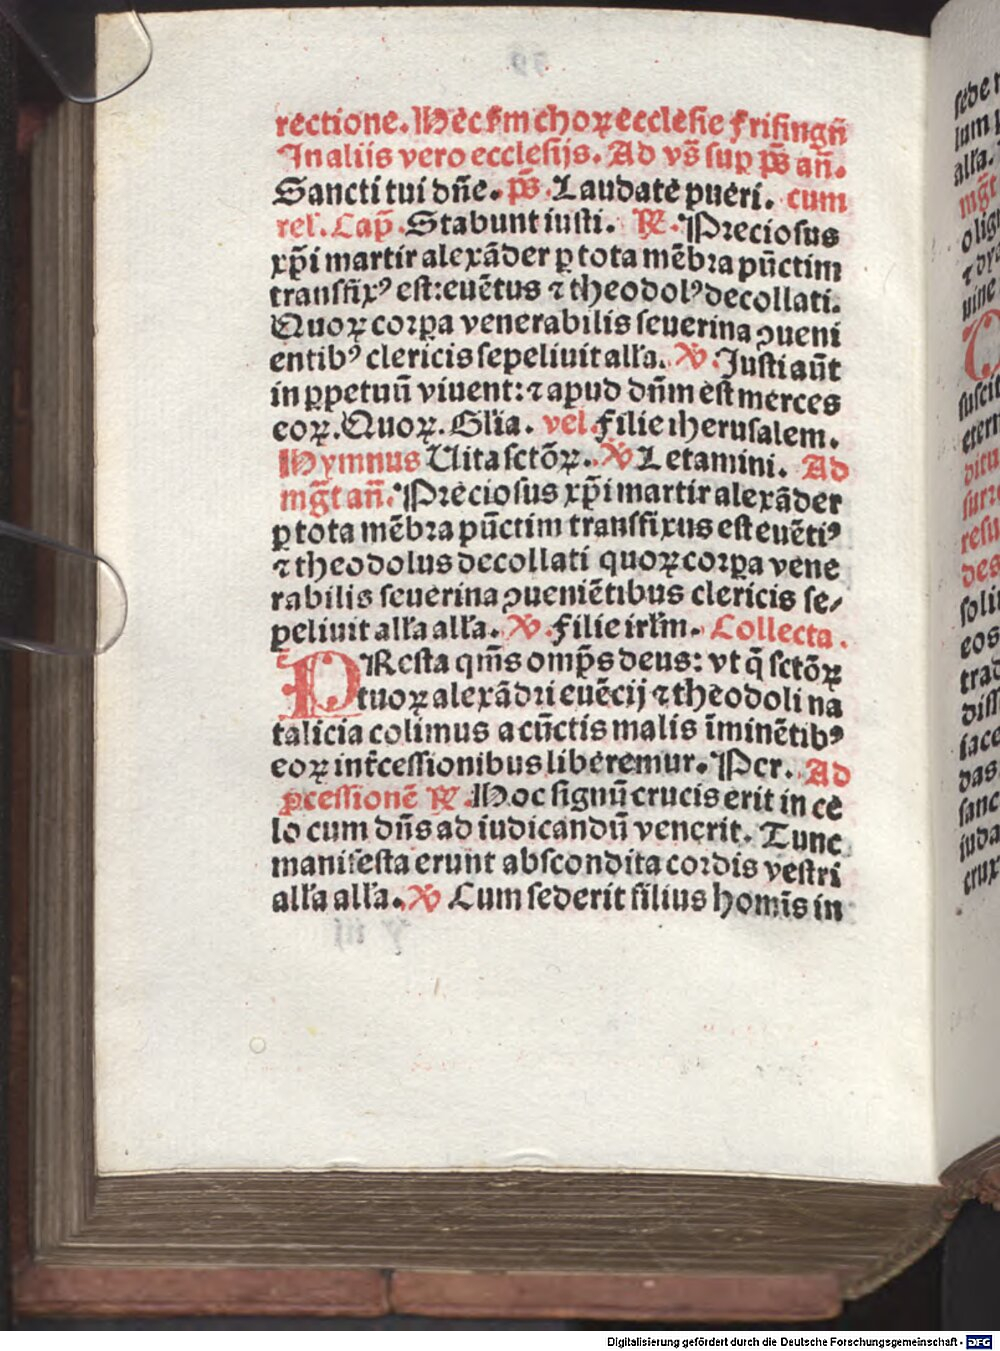 rectione. Hec ẜm choꝝ ecclesie frisingñ
In aliis vero ecclesijs. Ad vs̄ suꝑ ps̄ an̄.
Sancti tui dn̄e. ps̄. Laudate pueri. cum
rel'. Cap̄. Stabunt iusti. ℟. Preciosus
xp̄i martir alexāder ꝑ tota mēbra pūctim
transfixꝰ est: euētus ⁊ theodolꝰ decollati.
Quoꝝ corꝑa venerabilis seuerina ꝯueni
entibꝰ clericis sepeliuit alľa. ℣. Iusti aūt
in ꝑpetuū viuent: ⁊ apud dn̄m est merces
eoꝝ. Quoꝝ. Glīa. vel. Filie iherusalem.
Hymnus Uita sctōꝝ. ℣ Letamini. Ad
mg̅t an̄. Preciosus xp̄i martir alexāder
ꝑ tota mēbra pūctim transfixus est euētiꝰ
⁊ theodolus decollati quoꝝ corꝑa vene
rabilis seuerina ꝯueniētibus clericis se/
peliuit alľa alľa. ℣. Filie irľm. Collecta.
PResta qm̄s omp̄s deus: vt q̄ sctōꝝ
tuoꝝ alexādri euēcij ⁊ theodoli na
talicia colimus a cūctis malis īminētibꝰ
eoꝝ int̄cessionibus liberemur. Per. Ad
ꝓcessionē ℟. Hoc signū crucis erit in ce
lo cum dn̄s ad iudicandū venerit. Tunc
manifesta erunt abscondita cordis vestri
alľa alľa. ℣ Cum sederit filius homīs in
Digitalisierung gefördert durch die Deutsche Forschungsgemeinschaft - DFG